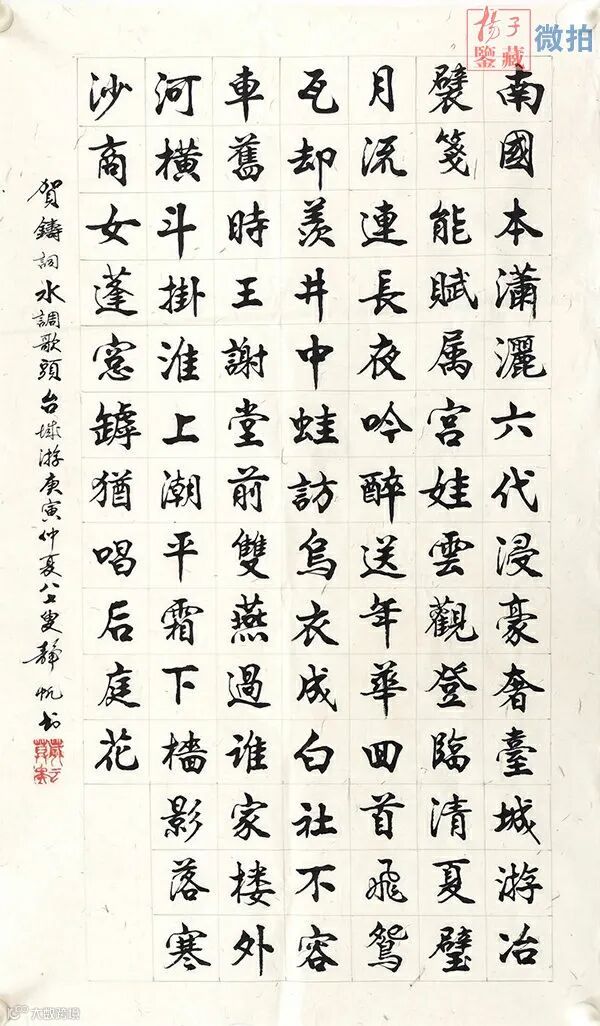 揚子
鑒藏
微拍
南國本瀟灑六代浸豪奢臺城游冶
襞箋能賦属宮娃雲觀登臨清夏璧
月流連長夜吟醉送年華囬首飛鴛
瓦却羨井中蛙訪烏衣成白社不容
車舊時王謝堂前雙燕過誰家楼外
河横斗掛淮上潮平霜下檣影落寒
沙商女蓬窓罅猶唱后庭花
賀鑄詞水調歌頭台城游庚寅仲夏八七叟静帆书
大数跨境